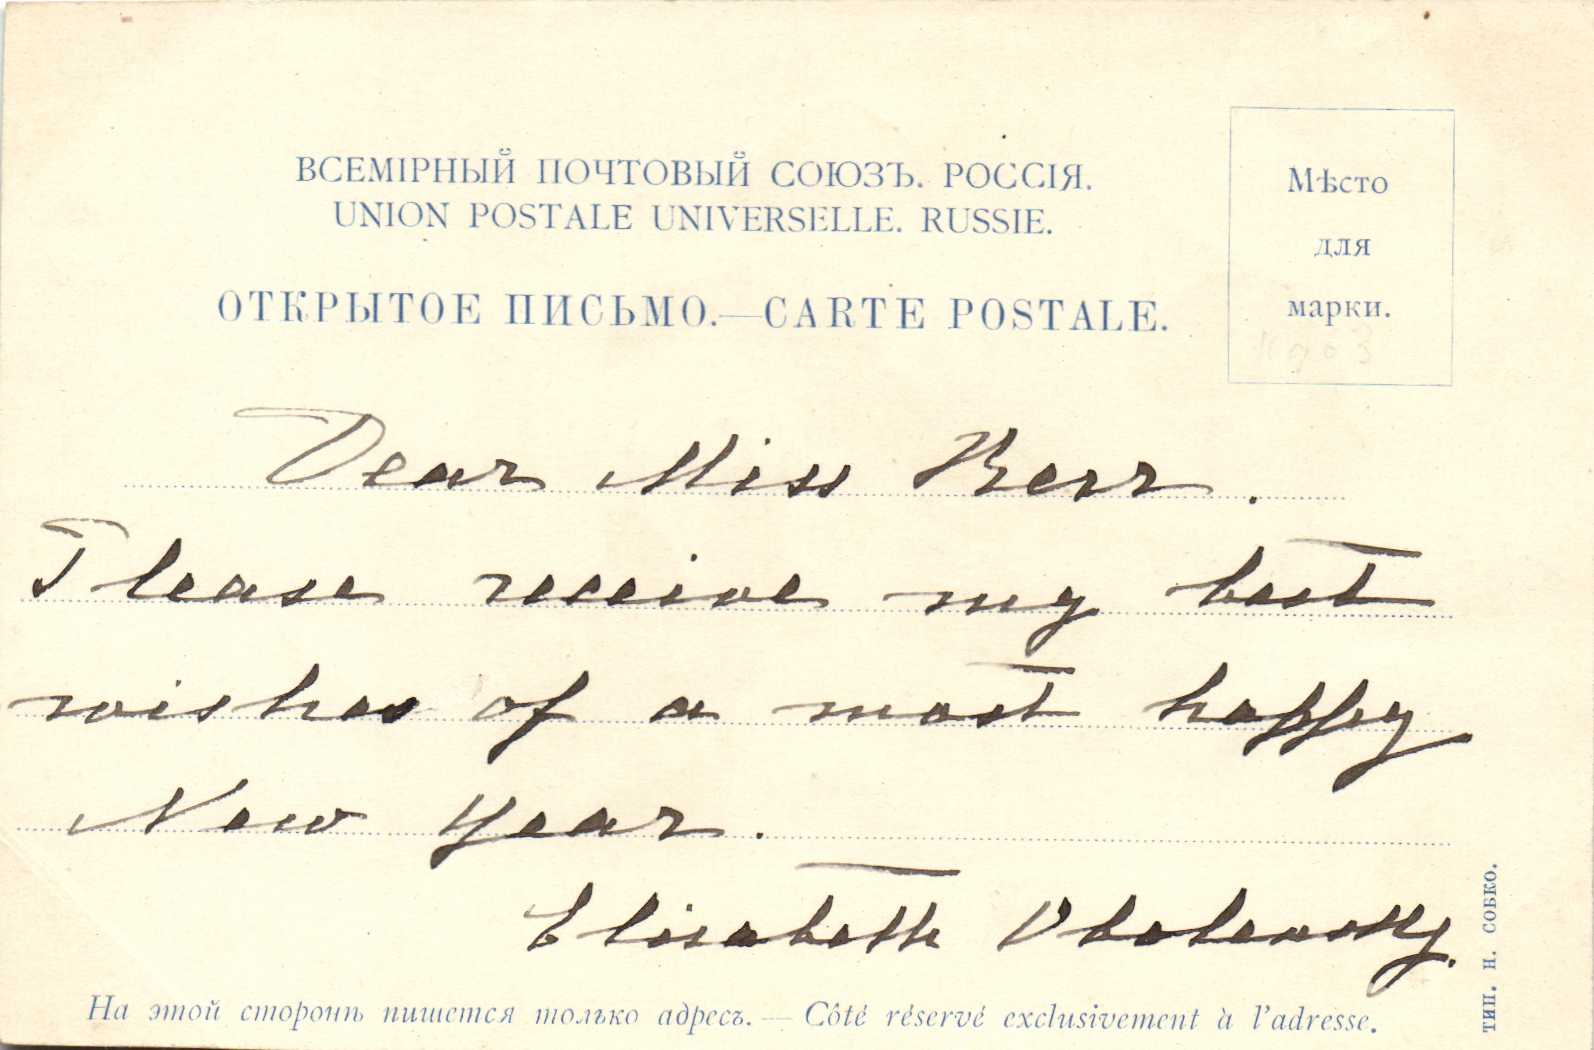 ВСЕМІРНЫЙ ПОЧТОВЫЙ СОЮЗЪ. РОССІЯ.
UNION POSTALE UNIVERSELLE. RUSSIE.
ОТКРЫТОЕ ПИСЬМО.—CARTE POSTALE.
Мѣсто
для
марки.
Dear Miss Kerr.
Please receive my best
wishes of a most happy
New Year.
Elisabeth Obolensky.
На этой сторонѣ пишется только адресъ.—Côté réservé exclusivement à l'adresse.
ТИП. Н. СОБКО.